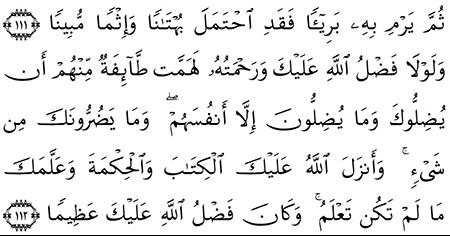 ثُمَّ يَرْمِ بِهِۦ بَرِيٓـًٔا فَقَدِ ٱحْتَمَلَ بُهْتَـٰنًا وَإِثْمًا مُّبِينًا ﴿١١١﴾
وَلَوْلَا فَضْلُ ٱللَّهِ عَلَيْكَ وَرَحْمَتُهُۥ لَهَمَّت طَّآئِفَةٌ مِّنْهُمْ أَن
يُضِلُّوكَ وَمَا يُضِلُّونَ إِلَّآ أَنفُسَهُمْ ۖ وَمَا يَضُرُّونَكَ مِن
شَىْءٍ ۚ وَأَنزَلَ ٱللَّهُ عَلَيْكَ ٱلْكِتَـٰبَ وَٱلْحِكْمَةَ وَعَلَّمَكَ
مَا لَمْ تَكُن تَعْلَمُ ۚ وَكَانَ فَضْلُ ٱللَّهِ عَلَيْكَ عَظِيمًا ﴿١١٢﴾